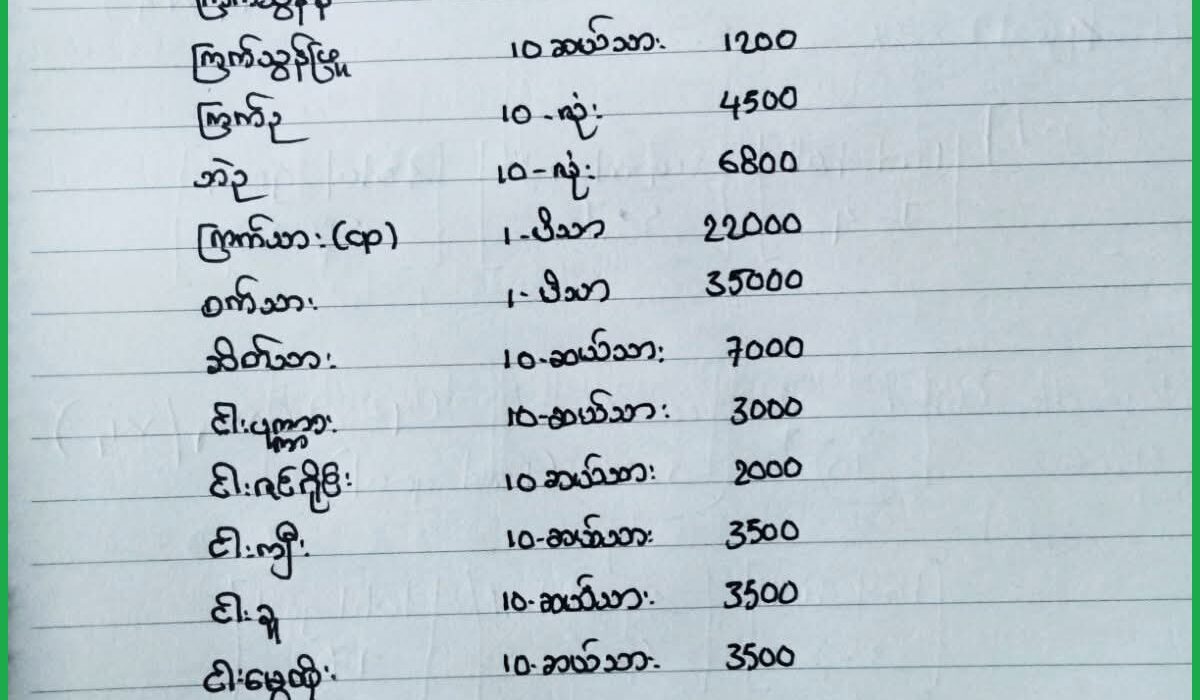 ကြက်သွန်နီ
ကြက်သွန်ဖြူ 10 ဆယ်သား 1200
ကြက်ဥ 10 - လုံး 4500
ဘဲဥ 10 - လုံး 6800
ကြက်သား (cp) 1 - ပိသာ 22000
ဝက်သား 1 - ပိသာ 35000
ဆိတ်သား 10 - ဆယ်သား 7000
ငါးပုဏ္ဏား 10 - ဆယ်သား 3000
ငါး 10 ဆယ်သား 2000
ငါးကျီး 10 - ဆယ်သား 3500
ငါးခူ 10 - ဆယ်သား 3500
ငါးမွေထိုး 10 - ဆယ်သား 3500